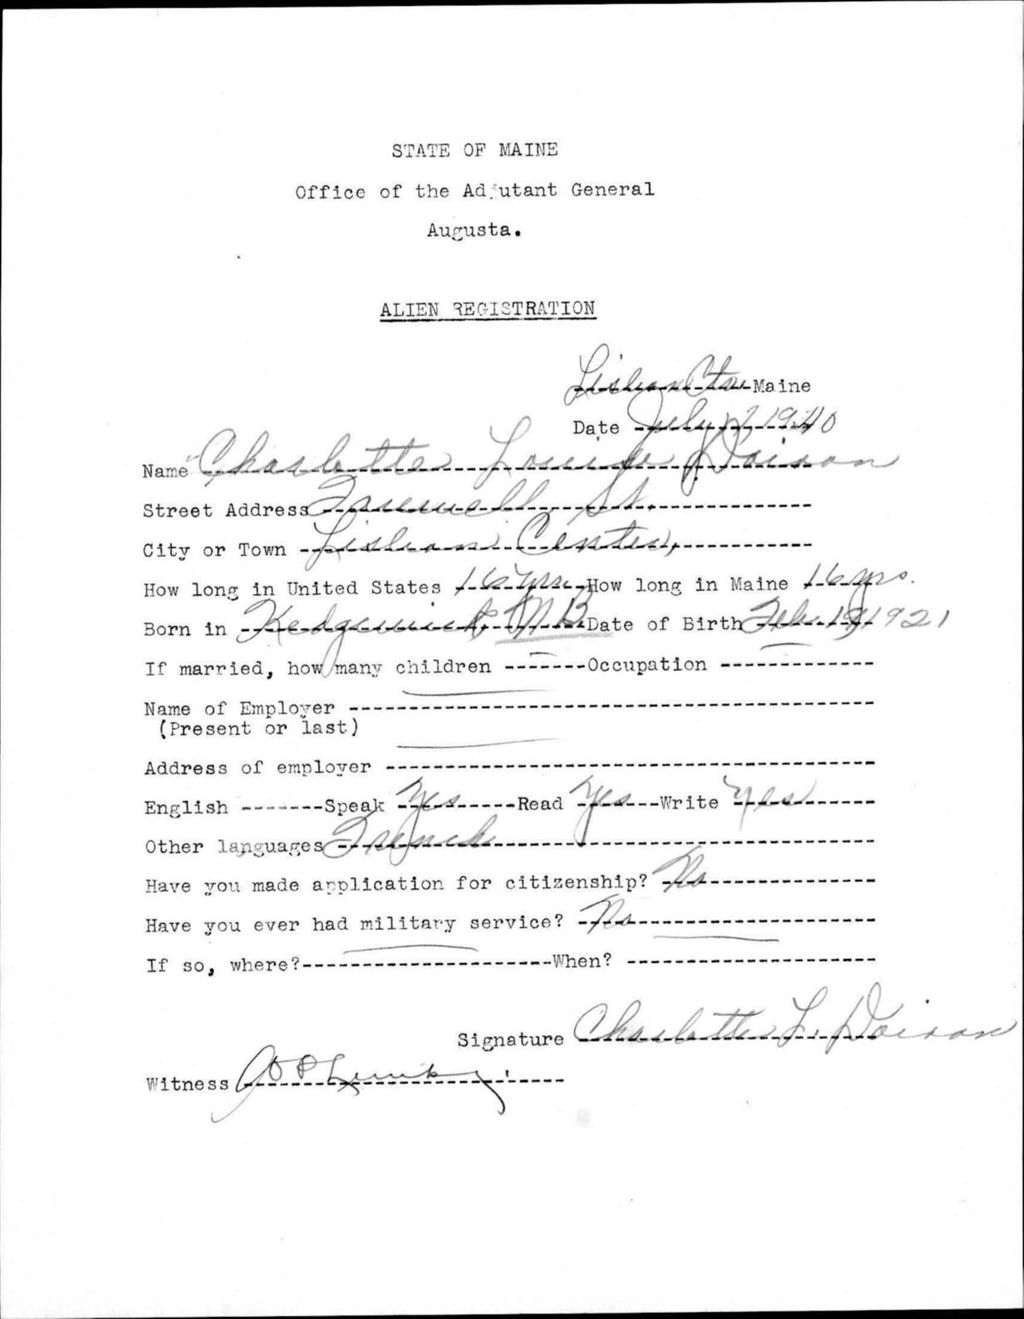 STATE OF MAINE
Office of the Adjutant General
Augusta.
ALIEN REGISTRATION
Lisbon Ctr Maine
Date July 2 1940
Name Charlotte Louise Doiron
Street Address St.
City or Town Lisbon Center,
How long in United States 16 yrs. How long in Maine 16 yrs.
Born in Kedgewick N B Date of Birth Feb. 19, 1921
If married, how many children ------- Occupation ------------
Name of Employer
(Present or last)
Address of employer
English ------- Speak Yes Read Yes Write Yes
Other languages French
Have you made application for citizenship? No
Have you ever had military service? No
If so, where? When?
Signature Charlotte L. Doiron
Witness